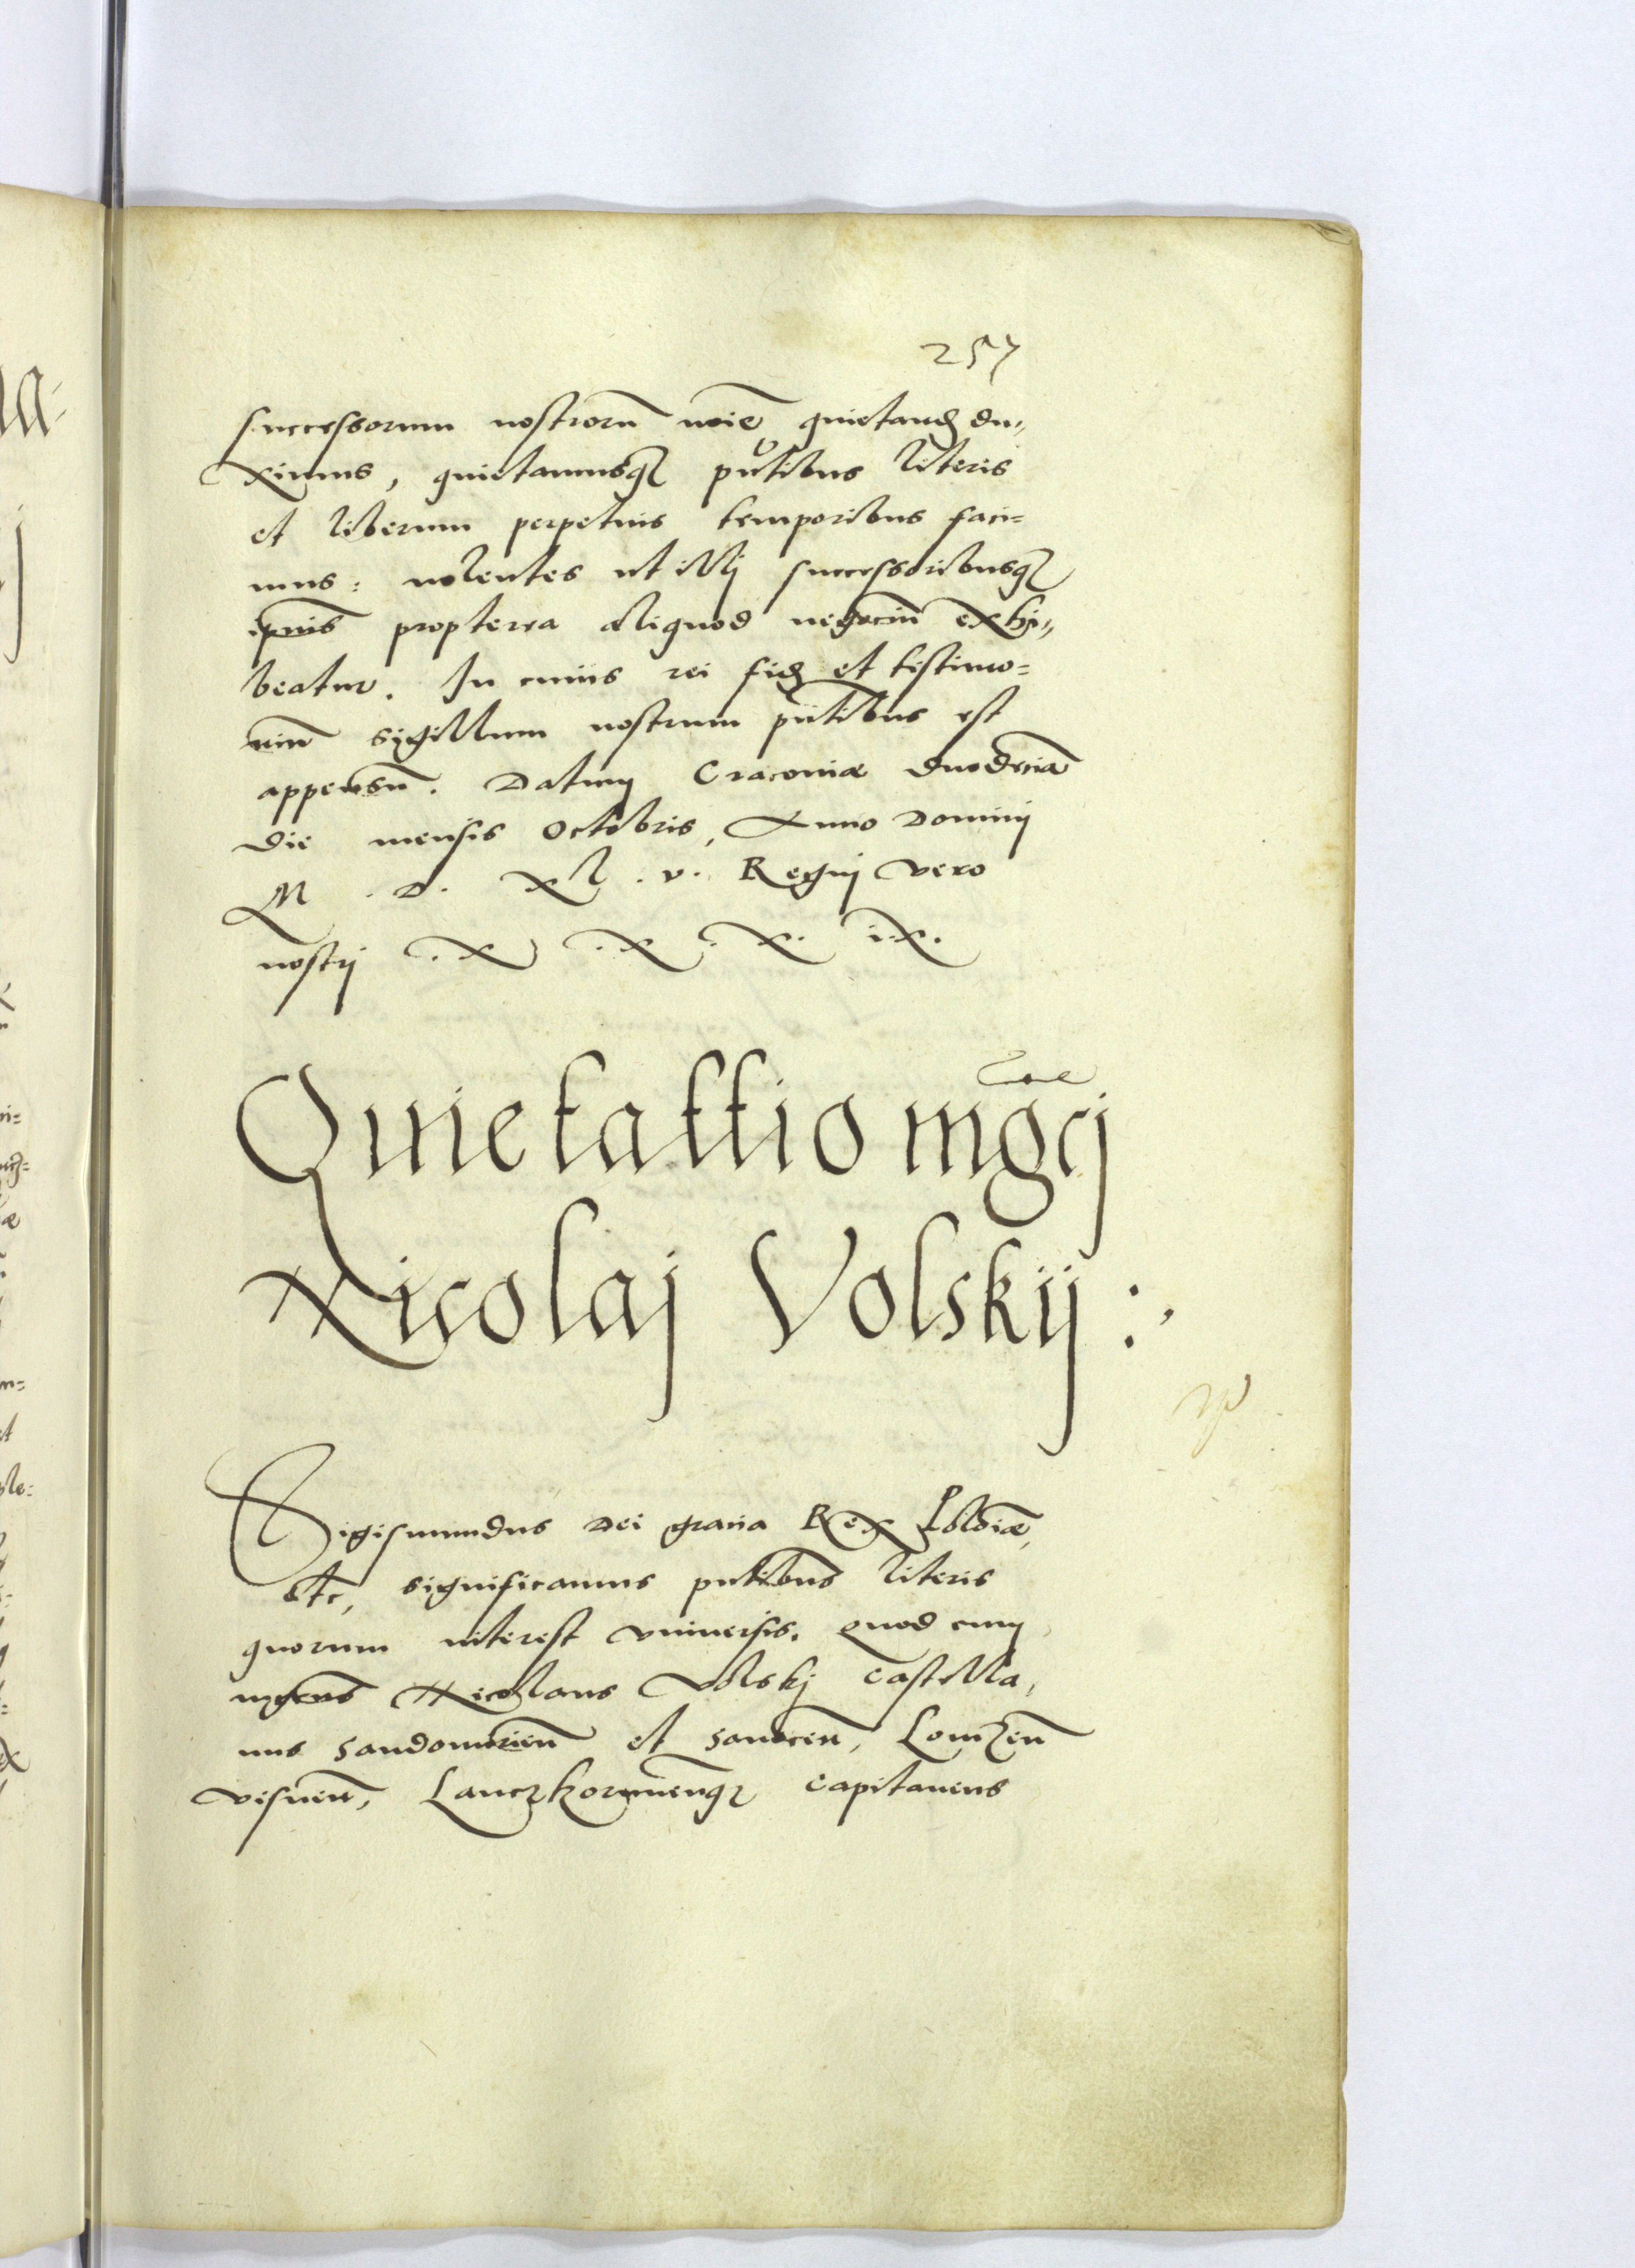 257
successorum nostrorū noīe quietand du„
ximus, quietamusq₃ pn̄tibus literis
et liberum perpetuis temporibus faci=
mus: nolentes ut illi successoribusq₃
ipsius propterea aliquod negociū exhi„
beatur. In cuius rei fid et testimo=
niū sigillum nostrum pn̄tibus est
appensū. Datum Cracoviæ duodeciā
die mensis Octobris, Anno Domini
M . D . Xl . v . Regni vero
nostri . X . X . X . iX .
Quietattio mgci
Nicolaj Volskij :,
Sigismundus Dei gratia Rex Poloīæ,
etc, significamus pn̄tibus literis
quorum interest universis. Quod cum
mgcus Nicolaus Volskj Castella,
nus Sandomirieñ et Sanoceñ, Lomzeñ
Visneñ, Lanczkorunenq₃ Capitaneus